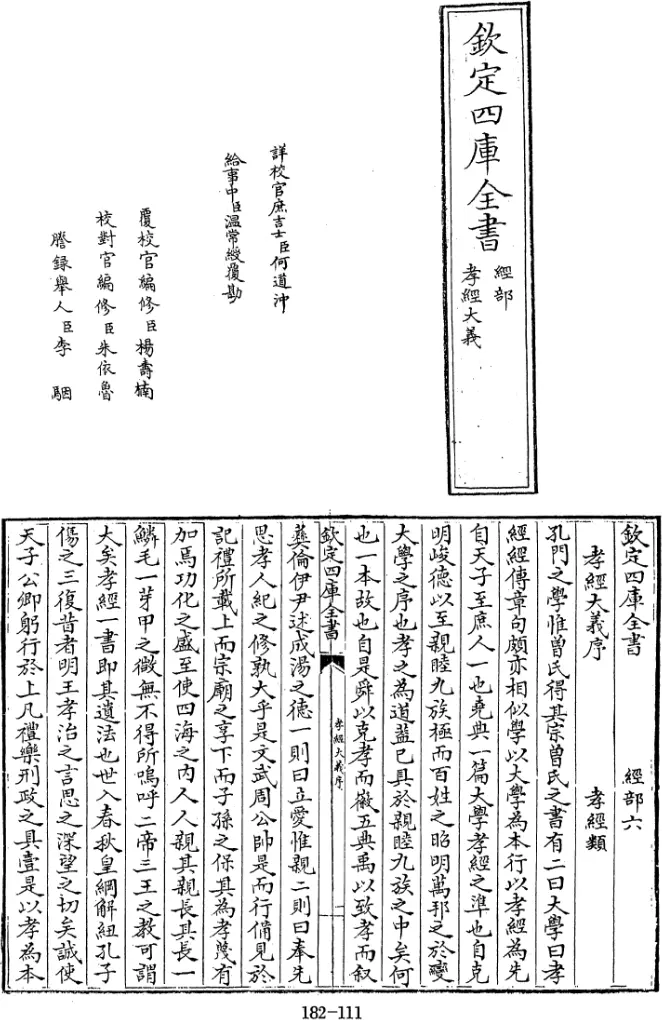 欽定四庫全書
經部
孝經大義
詳校官庶吉士臣何道沖
給事中臣溫常綬覆勘
覆校官編修臣楊壽楠
校對官編修臣朱依魯
謄錄舉人臣李駰
欽定四庫全書 經部六
孝經大義序 孝經類
孔門之學惟曽氏得其宗曽氏之書有二曰大學曰孝
經經傳章句頗亦相似學以大學為本行以孝經為先
自天子至庶人一也堯典一篇大學孝經之準也自克
明峻德以至親睦九族極而百姓之昭明萬邦之於變
大學之序也孝之為道蓋已具於親睦九族之中矣何
也一本故也自是舜以克孝而徽五典禹以致孝而叙
欽定四庫全書
孝經大義序
彞倫伊尹述成湯之德一則曰立愛惟親二則曰奉先
思孝人紀之修孰大乎是文武周公帥是而行備見於
記禮所載上而宗廟之享下而子孫之保其為孝蔑有
加焉功化之盛至使四海之内人人親其親長其長一
鱗毛一芽甲之微無不得所嗚呼二帝三王之教可謂
大矣孝經一書即其遺法也世入春秋皇綱解紐孔子
傷之三復昔者明王孝治之言思之深望之切矣誠使
天子公卿躬行於上凡禮樂刑政之具壹是以孝為本
182-111